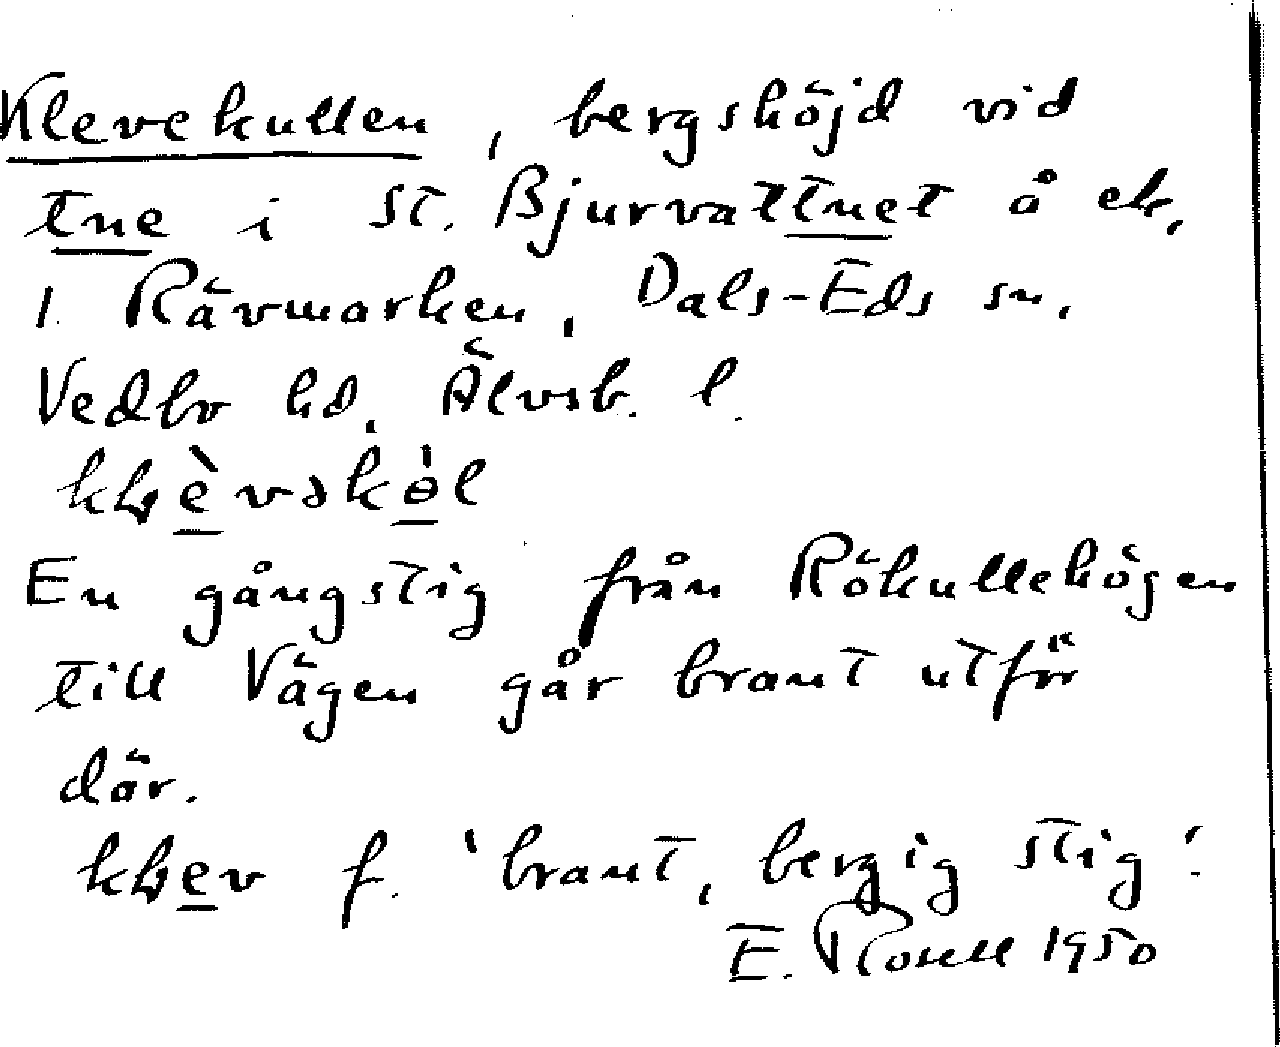 Klevekullen, bergshöjd vid
tne i St. Bjurvattnet å ek.
1. Rävmarken, Dals-Eds sn,
Vedbo hd, Älvsb. l.
En gångstig från Rökullehögen
till Vägen går brant utför
där.
f. 'brant, bergig stig'.
E. Rosell 1950